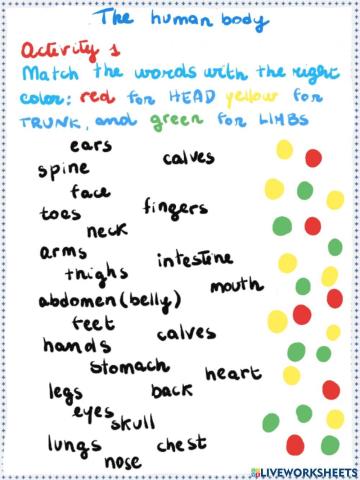 The human body
Activity 1
Match the words with the right
color: red for HEAD yellow for
TRUNK, and green for LIMBS
ears
calves
spine
face
toes
fingers
neck
arms
intestine
thighs
mouth
abdomen (belly)
feet
calves
hands
stomach
heart
legs
back
eyes
skull
lungs
chest
nose
LIVEWORKSHEETS